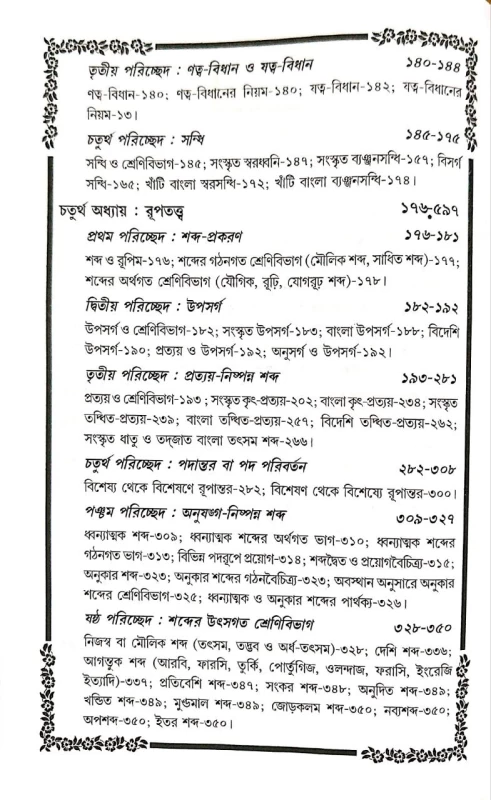 তৃতীয় পরিচ্ছেদ : ণত্ব-বিধান ও ষত্ব-বিধান ১৪০-১৪৪
ণত্ব-বিধান-১৪০; ণত্ব-বিধানের নিয়ম-১৪০; ষত্ব-বিধান-১৪২; ষত্ব-বিধানের
নিয়ম-১৩।
চতুর্থ পরিচ্ছেদ : সন্ধি ১৪৫-১৭৫
সন্ধি ও শ্রেণিবিভাগ-১৪৫; সংস্কৃত স্বরধ্বনি-১৪৭; সংস্কৃত ব্যঞ্জনসন্ধি-১৫৭; বিসর্গ
সন্ধি-১৬৫; খাঁটি বাংলা স্বরসন্ধি-১৭২; খাঁটি বাংলা ব্যঞ্জনসন্ধি-১৭৪।
চতুর্থ অধ্যায় : রূপতত্ত্ব ১৭৬-৫৯৭
প্রথম পরিচ্ছেদ : শব্দ-প্রকরণ ১৭৬-১৮১
শব্দ ও রূপিম-১৭৬; শব্দের গঠনগত শ্রেণিবিভাগ (মৌলিক শব্দ, সাধিত শব্দ)-১৭৭;
শব্দের অর্থগত শ্রেণিবিভাগ (যৌগিক, রূঢ়ি, যোগরূঢ় শব্দ)-১৭৮।
দ্বিতীয় পরিচ্ছেদ : উপসর্গ ১৮২-১৯২
উপসর্গ ও শ্রেণিবিভাগ-১৮২; সংস্কৃত উপসর্গ-১৮৩; বাংলা উপসর্গ-১৮৮; বিদেশি
উপসর্গ-১৯০; প্রত্যয় ও উপসর্গ-১৯২; অনুসর্গ ও উপসর্গ-১৯২।
তৃতীয় পরিচ্ছেদ : প্রত্যয়-নিষ্পন্ন শব্দ ১৯৩-২৮১
প্রত্যয় ও শ্রেণিবিভাগ-১৯৩; সংস্কৃত কৃৎ-প্রত্যয়-২০২; বাংলা কৃৎ-প্রত্যয়-২৩৪; সংস্কৃত
তদ্ধিত-প্রত্যয়-২৩৯; বাংলা তদ্ধিত-প্রত্যয়-২৫৭; বিদেশি তদ্ধিত-প্রত্যয়-২৬২;
সংস্কৃত ধাতু ও তদ্‌জাত বাংলা তৎসম শব্দ-২৬৬।
চতুর্থ পরিচ্ছেদ : পদান্তর বা পদ পরিবর্তন ২৮২-৩০৮
বিশেষ্য থেকে বিশেষণে রূপান্তর-২৮২; বিশেষণ থেকে বিশেষ্যে রূপান্তর-৩০০।
পঞ্চম পরিচ্ছেদ : অনুষঙ্গ-নিষ্পন্ন শব্দ ৩০৯-৩২৭
ধ্বন্যাত্মক শব্দ-৩০৯; ধ্বন্যাত্মক শব্দের অর্থগত ভাগ-৩১০; ধ্বন্যাত্মক শব্দের
গঠনগত ভাগ-৩১৩; বিভিন্ন পদরূপে প্রয়োগ-৩১৪; শব্দদ্বৈত ও প্রয়োগবৈচিত্র্য-৩১৫;
অনুকার শব্দ-৩২৩; অনুকার শব্দের গঠনবৈচিত্র্য-৩২৩; অবস্থান অনুসারে অনুকার
শব্দের শ্রেণিবিভাগ-৩২৫; ধ্বন্যাত্মক ও অনুকার শব্দের পার্থক্য-৩২৬।
ষষ্ঠ পরিচ্ছেদ : শব্দের উৎসগত শ্রেণিবিভাগ ৩২৮-৩৫০
নিজস্ব বা মৌলিক শব্দ (তৎসম, তদ্ভব ও অর্ধ-তৎসম)-৩২৮; দেশি শব্দ-৩৩৬;
আগন্তুক শব্দ (আরবি, ফারসি, তুর্কি, পোর্তুগিজ, ওলন্দাজ, ফরাসি, ইংরেজি
ইত্যাদি)-৩৩৭; প্রতিবেশি শব্দ-৩৪৭; সংকর শব্দ-৩৪৮; অনূদিত শব্দ-৩৪৯;
খণ্ডিত শব্দ-৩৪৯; মুণ্ডমাল শব্দ-৩৪৯; জোড়কলম শব্দ-৩৫০; নব্যশব্দ-৩৫০;
অপশব্দ-৩৫০; ইতর শব্দ-৩৫০।